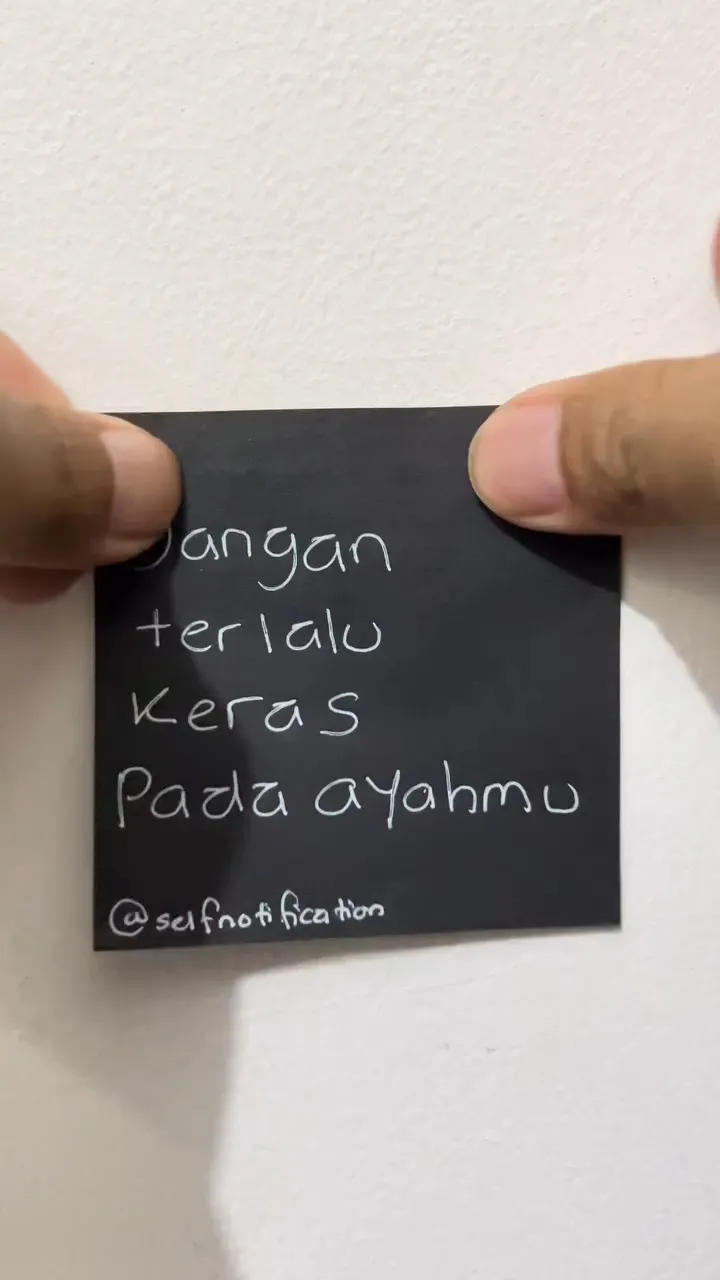 Jangan
terlalu
keras
Pada ayahmu
@selfnotification